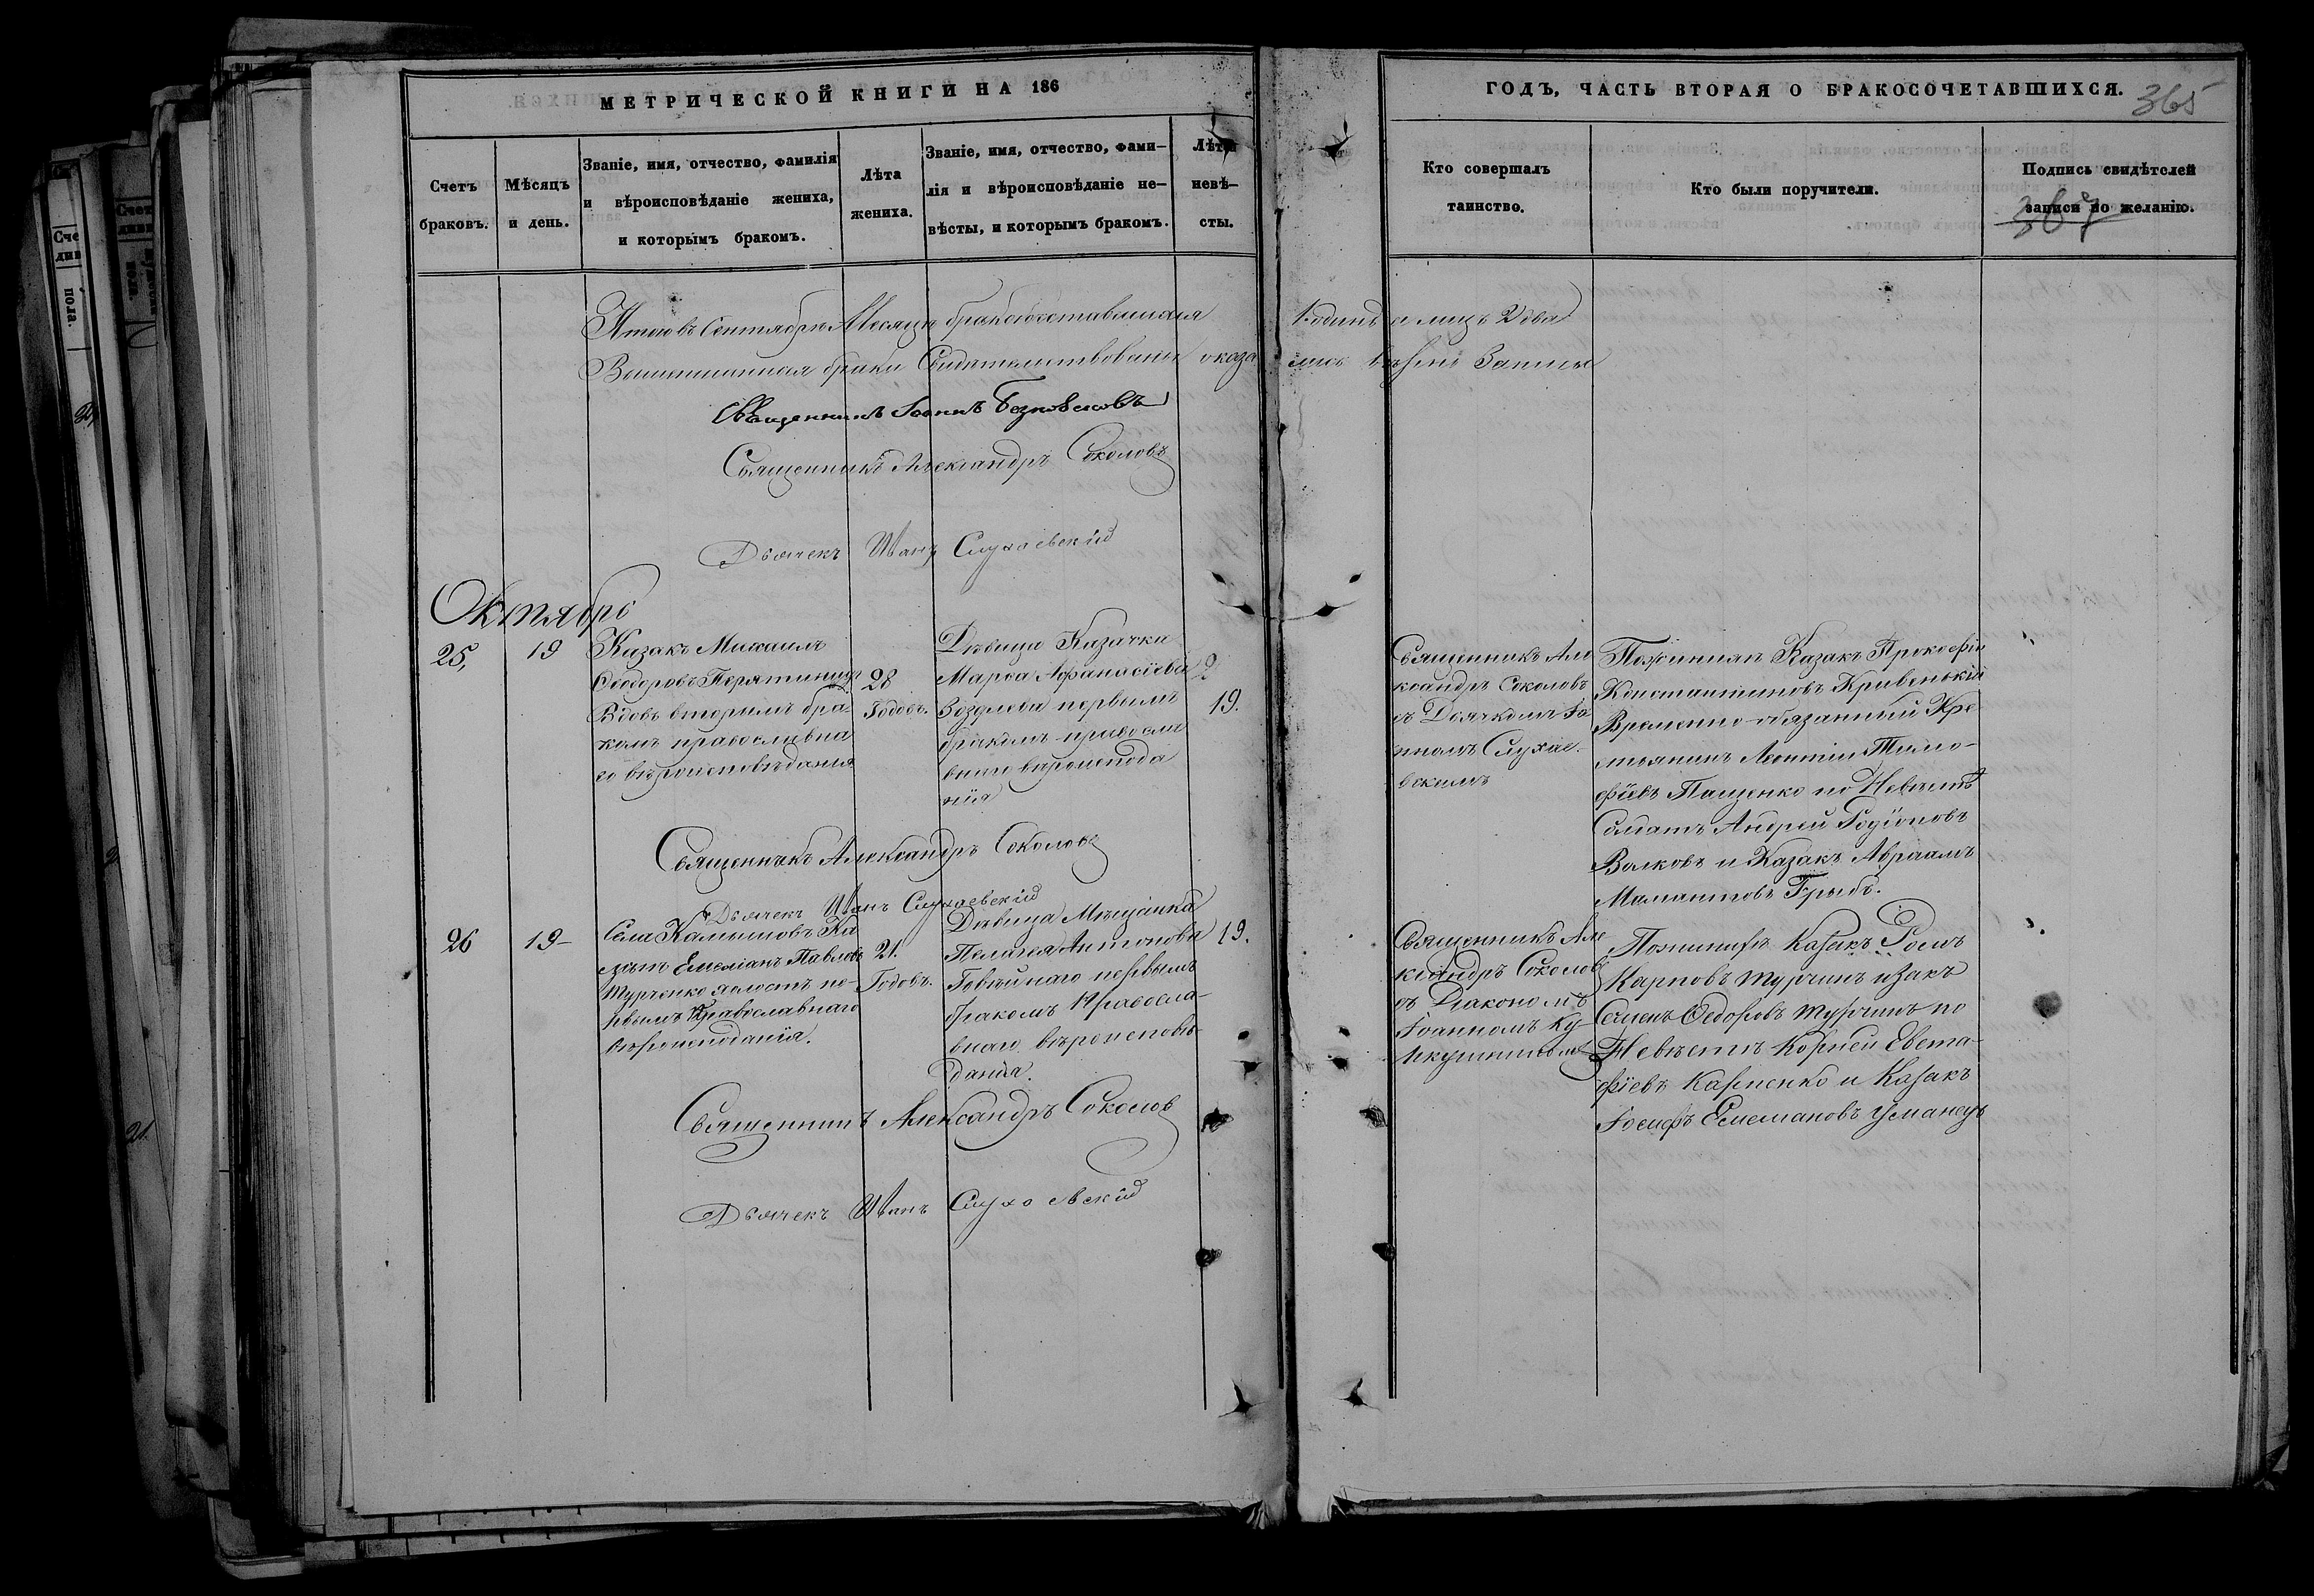 МЕТРИЧЕСКОЙ КНИГИ НА 186
ГОДЪ, ЧАСТЬ ВТОРАЯ О БРАКОСОЧЕТАВШИХСЯ.
365
Счетъ
браковъ.
Мѣсяцъ
и день.
Званіе, имя, отчество, фамилія
и вѣроисповѣданіе жениха,
и которымъ бракомъ.
Лѣта
жениха.
Званіе, имя, отчество, фами-
лія и вѣроисповѣданіе не-
вѣсты, и которымъ бракомъ.
Лѣта
невѣ-
сты.
Кто совершалъ
таинство.
Кто были поручители.
Подпись свидѣтелей
записи по желанію.
367
Итого въ Сентябрѣ Месяцѣ бракосочетавшихся 1 одинъ а лицъ 2 два
браки Свидетельствованы оказались
Священникъ Іоаннъ
Священникъ Александръ Соколовъ
Дьячекъ Иванъ Слухаевскій
Октябрь
25,
19
Казакъ Михаилъ
Ѳеодоровъ Перятинецъ
Вдовъ вторымъ бра-
комъ православна
го вѣроисповѣданія
28
Годовъ.
Дѣвица Казачка
Марѳа Афанасіева
первымъ
бракомъ правосла
внаго вѣроисповѣда
нія
19.
Священникъ Але
ксандръ Соколовъ
съ Дьячкомъ Іо
нномъ Слухае-
вскимъ
Казакъ Прокофій
Константиновъ Кривенькій
Временно-обязанный Кре
стьянинъ Леонтій Тимо-
фіевъ Пащенко по Невѣстѣ
Солдатъ Андрей Родіоновъ
Волковъ и Казакъ Авраамъ
Мамантовъ Грыбъ.
Священникъ Александръ Соколовъ
Дьячекъ Иванъ Слухаевскій
26
19-
Села Ка
Емеліанъ Павловъ
Турченко холостъ пе-
рвымъ Православнаго
вѣроисповѣданія.
21.
Годовъ.
Дѣвица Мѣщанка
Пелагея Антонова
первымъ
бракомъ Правосла-
внаго вѣроисповѣ-
данія.
19.
Священникъ Але
ксандръ Соколовъ
съ Діакономъ
Іоанномъ
Казакъ
Карповъ Турчинъ
Семенъ Ѳедоровъ Турчинъ по
Невѣстѣ Корней Евста-
фіевъ Карпенко и Казакъ
Іосифъ Емеліановъ Усманецъ
Священникъ Александръ Соколовъ
Дьячекъ Иванъ Слухаевскій